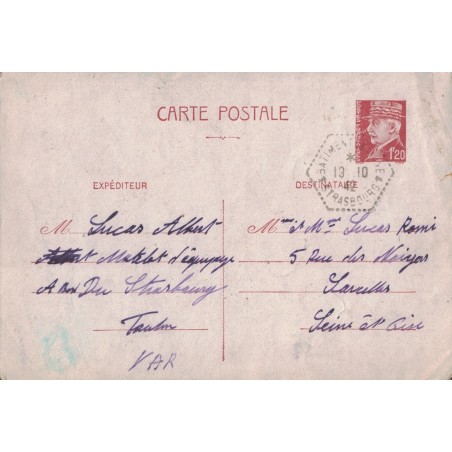 CARTE POSTALE
1f20
BATIMENT DE LIGNE
*
13 10
42
STRASBOURG
EXPÉDITEUR
M Lucas Albert
Matelot d'équipage
A Bord Du Strasbourg
Toulon
VAR
DESTINATAIRE
Mme et Mr Lucas Remi
5 Rue des
Sarcelles
Seine et Oise